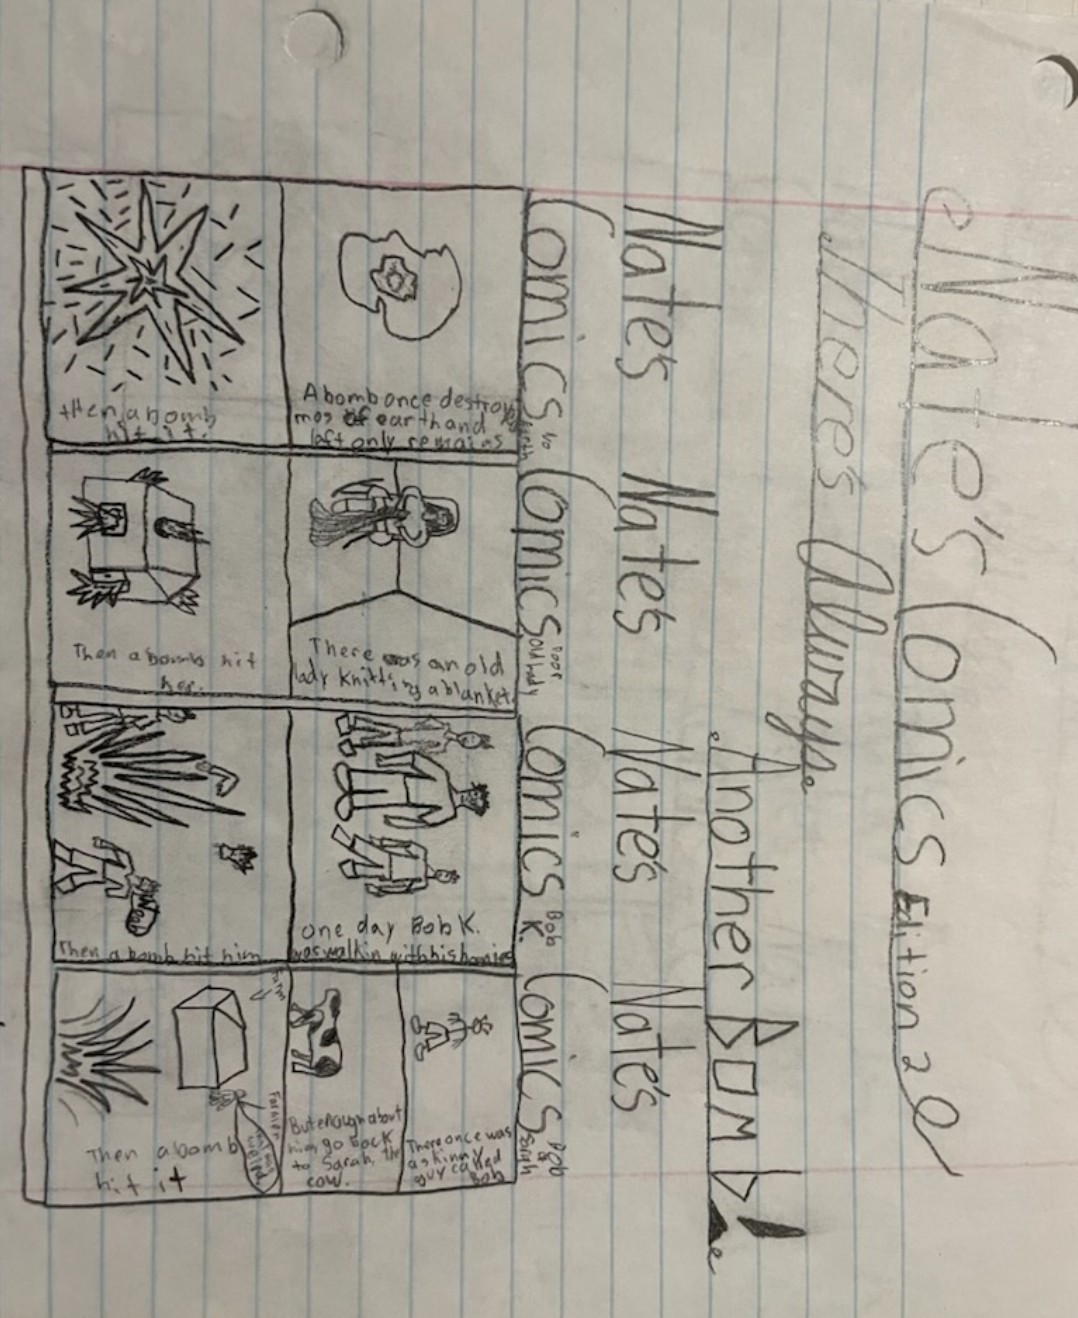 Nate's Comics Edition 2
Theres Always
Another Bomb!
Nate's
Comics
No
earth
A bomb once destroy
mos of earth and
left only remains
then a bomb
hit it.
Nate's
Comics
Poor
old lady
There was an old
lady knitting a blanket.
Then a bomb hit
her.
Nate's
Comics
Bob
K.
one day Bob K.
was walkin with his homies
Then a bomb hit him
Nate's
Comics
Bob
Sarah
There once was
a skinny
guy called
Bob
But enough about
him go back
to Sarah, the
cow.
Farmer
Then a bomb
hit it